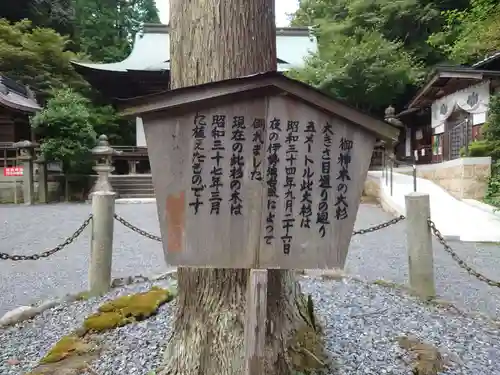 御神木の大杉
大きさ目の廻り
5メートル此大杉
昭和三十四年九月二十六日
夜の伊勢湾台風によって
御れました
現在の此杉の木は
昭和三十七年三月
に植えたものです